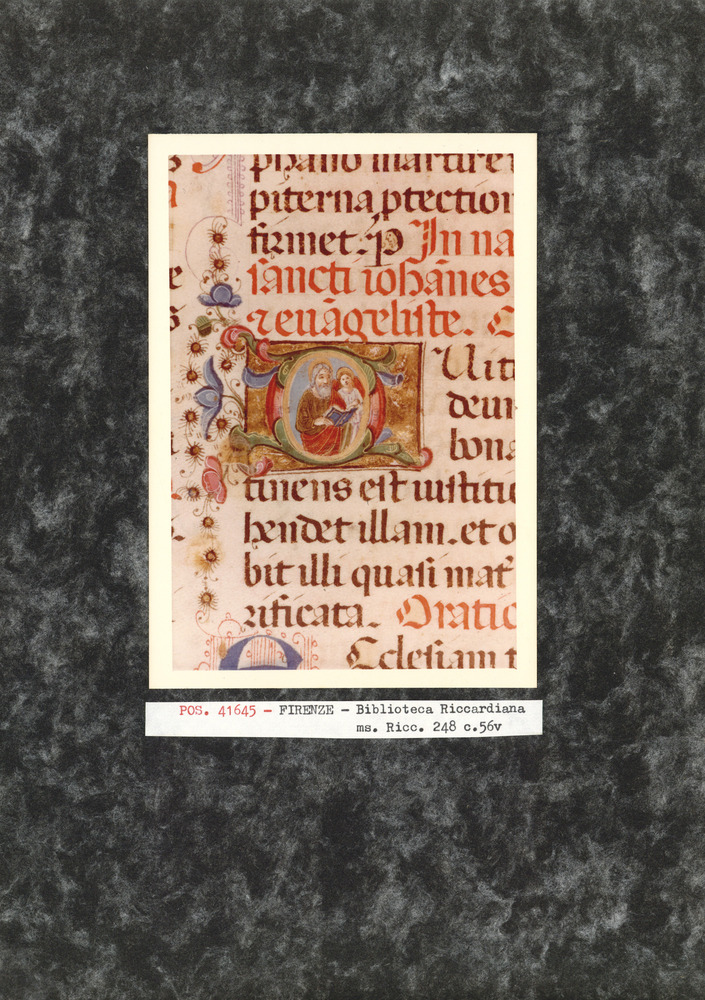 phano martire
piterna ptectio
firmet. p In na
sancti iohānes
z euāgeliste.
Uit
deu
bona
tinens est iustitie
hendet illam. et o
bit illi quasi mat
rificata. Oratio
Cclesiam
POS. 41645 - FIRENZE - Biblioteca Riccardiana
ms. Ricc. 248 c.56v